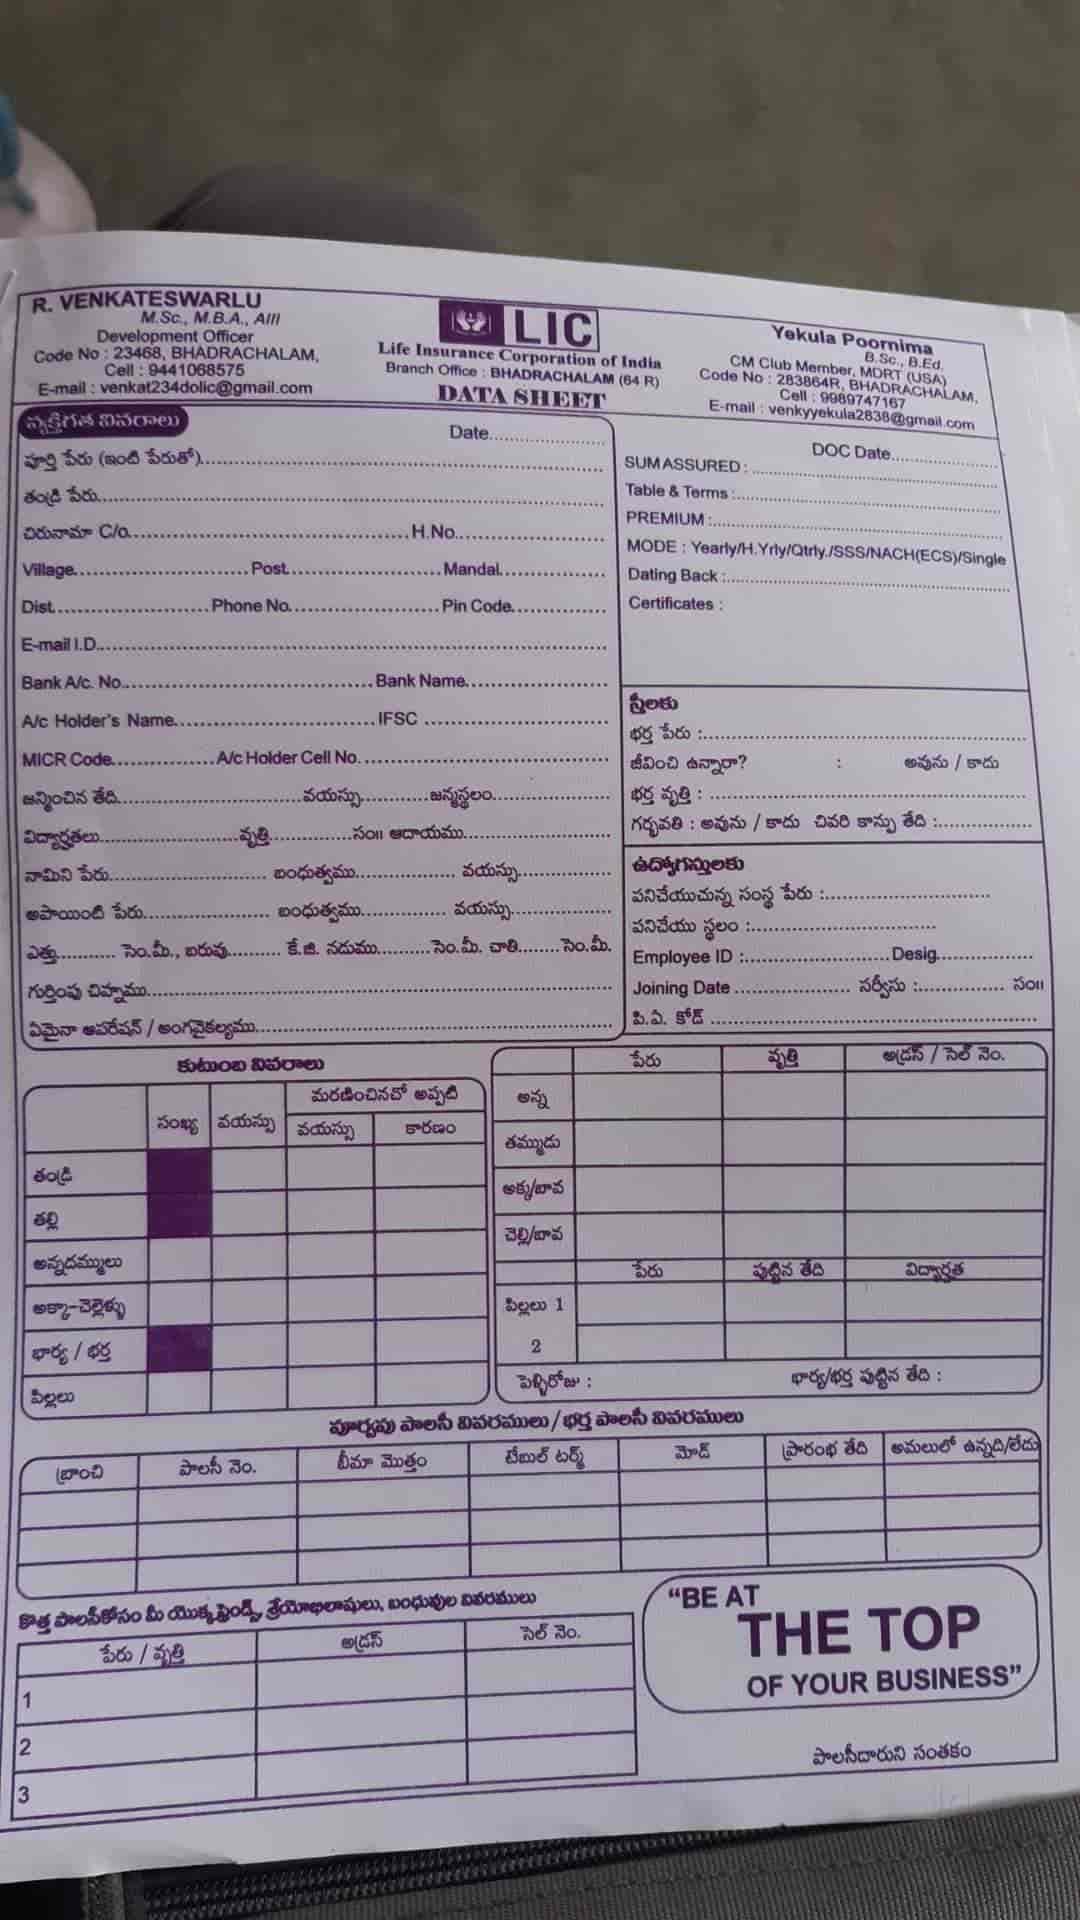 R. VENKATESWARLU
M.Sc., M.B.A., AIII
Development Officer
Code No : 23468, BHADRACHALAM,
Cell : 9441068575
E-mail : venkat234dolic@gmail.com
LIC
Life Insurance Corporation of India
Branch Office : BHADRACHALAM (64 R)
DATA SHEET
Yekula Poornima
B.Sc., B.Ed.
CM Club Member, MDRT (USA)
Code No : 283864R, BHADRACHALAM,
Cell : 9989747167
E-mail : venkyyekula2838@gmail.com
వ్యక్తిగత వివరాలు
Date
పూర్తి పేరు (ఇంటి పేరుతో)
తండ్రి పేరు
చిరునామా C/o H.No.
Village Post Mandal
Dist. Phone No. Pin Code
E-mail I.D.
Bank A/c. No. Bank Name
A/c Holder's Name IFSC
MICR Code A/c Holder Cell No.
జన్మించిన తేది వయస్సు జన్మస్థలం
విద్యార్హతలు వృత్తి సం॥ ఆదాయము
నామిని పేరు బంధుత్వము వయస్సు
అపాయింటి పేరు బంధుత్వము వయస్సు
ఎత్తు సెం.మీ., బరువు కే.జి. నడుము సెం.మీ. చాతి సెం.మీ.
గుర్తింపు చిహ్నము
ఏమైనా ఆపరేషన్ / అంగవైకల్యము
DOC Date
SUM ASSURED :
Table & Terms :
PREMIUM :
MODE : Yearly/H.Yrly/Qtrly./SSS/NACH(ECS)/Single
Dating Back :
Certificates :
స్త్రీలకు
భర్త పేరు :
జీవించి ఉన్నారా? : అవును / కాదు
భర్త వృత్తి :
గర్భవతి : అవును / కాదు చివరి కాన్పు తేది :
ఉద్యోగస్తులకు
పనిచేయుచున్న సంస్థ పేరు :
పనిచేయు స్థలం :
Employee ID : Desig.
Joining Date సర్వీసు : సం॥
పి.ఏ. కోడ్
కుటుంబ వివరాలు
సంఖ్య వయస్సు మరణించినచో అప్పటి
వయస్సు కారణం
తండ్రి
తల్లి
అన్నదమ్ములు
అక్కా-చెల్లెళ్ళు
భార్య / భర్త
పిల్లలు
పేరు వృత్తి అడ్రస్ / సెల్ నెం.
అన్న
తమ్ముడు
అక్క/బావ
చెల్లి/బావ
పేరు పుట్టిన తేది విద్యార్హత
పిల్లలు 1
2
పెళ్ళిరోజు : భార్య/భర్త పుట్టిన తేది :
పూర్వపు పాలసీ వివరములు / భర్త పాలసీ వివరములు
బ్రాంచి పాలసీ నెం. బీమా మొత్తం టేబుల్ టర్మ్ మోడ్ ప్రారంభ తేది అమలులో ఉన్నది/లేదు
కొత్త పాలసీకోసం మీ యొక్క ఫ్రెండ్స్, శ్రేయోభిలాషులు, బంధువుల వివరములు
పేరు / వృత్తి అడ్రస్ సెల్ నెం.
1
2
3
“BE AT
THE TOP
OF YOUR BUSINESS”
పాలసీదారుని సంతకం